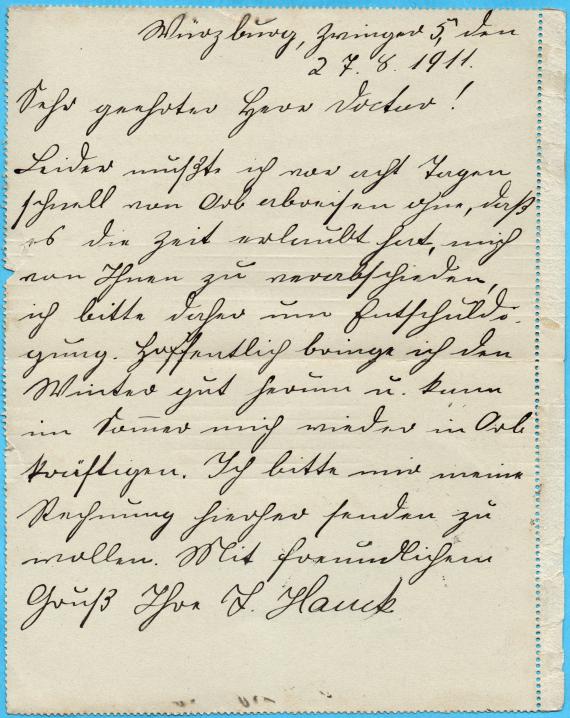 Würzburg, Zwinger 5, den
27. 8. 1911.
Sehr geehrter Herr Doctor!
Leider mußte ich vor acht Tagen
schnell von Orb abreisen ohne, daß
es die Zeit erlaubt hat, mich
von Ihnen zu verabschieden,
ich bitte daher um Entschuldi-
gung. Hoffentlich bringe ich den
Winter gut herum u. kann
im Sommer mich wieder in Orb
kräftigen. Ich bitte mir meine
Rechnung hierher senden zu
wollen. Mit freundlichem
Gruß Ihre F. Hauck